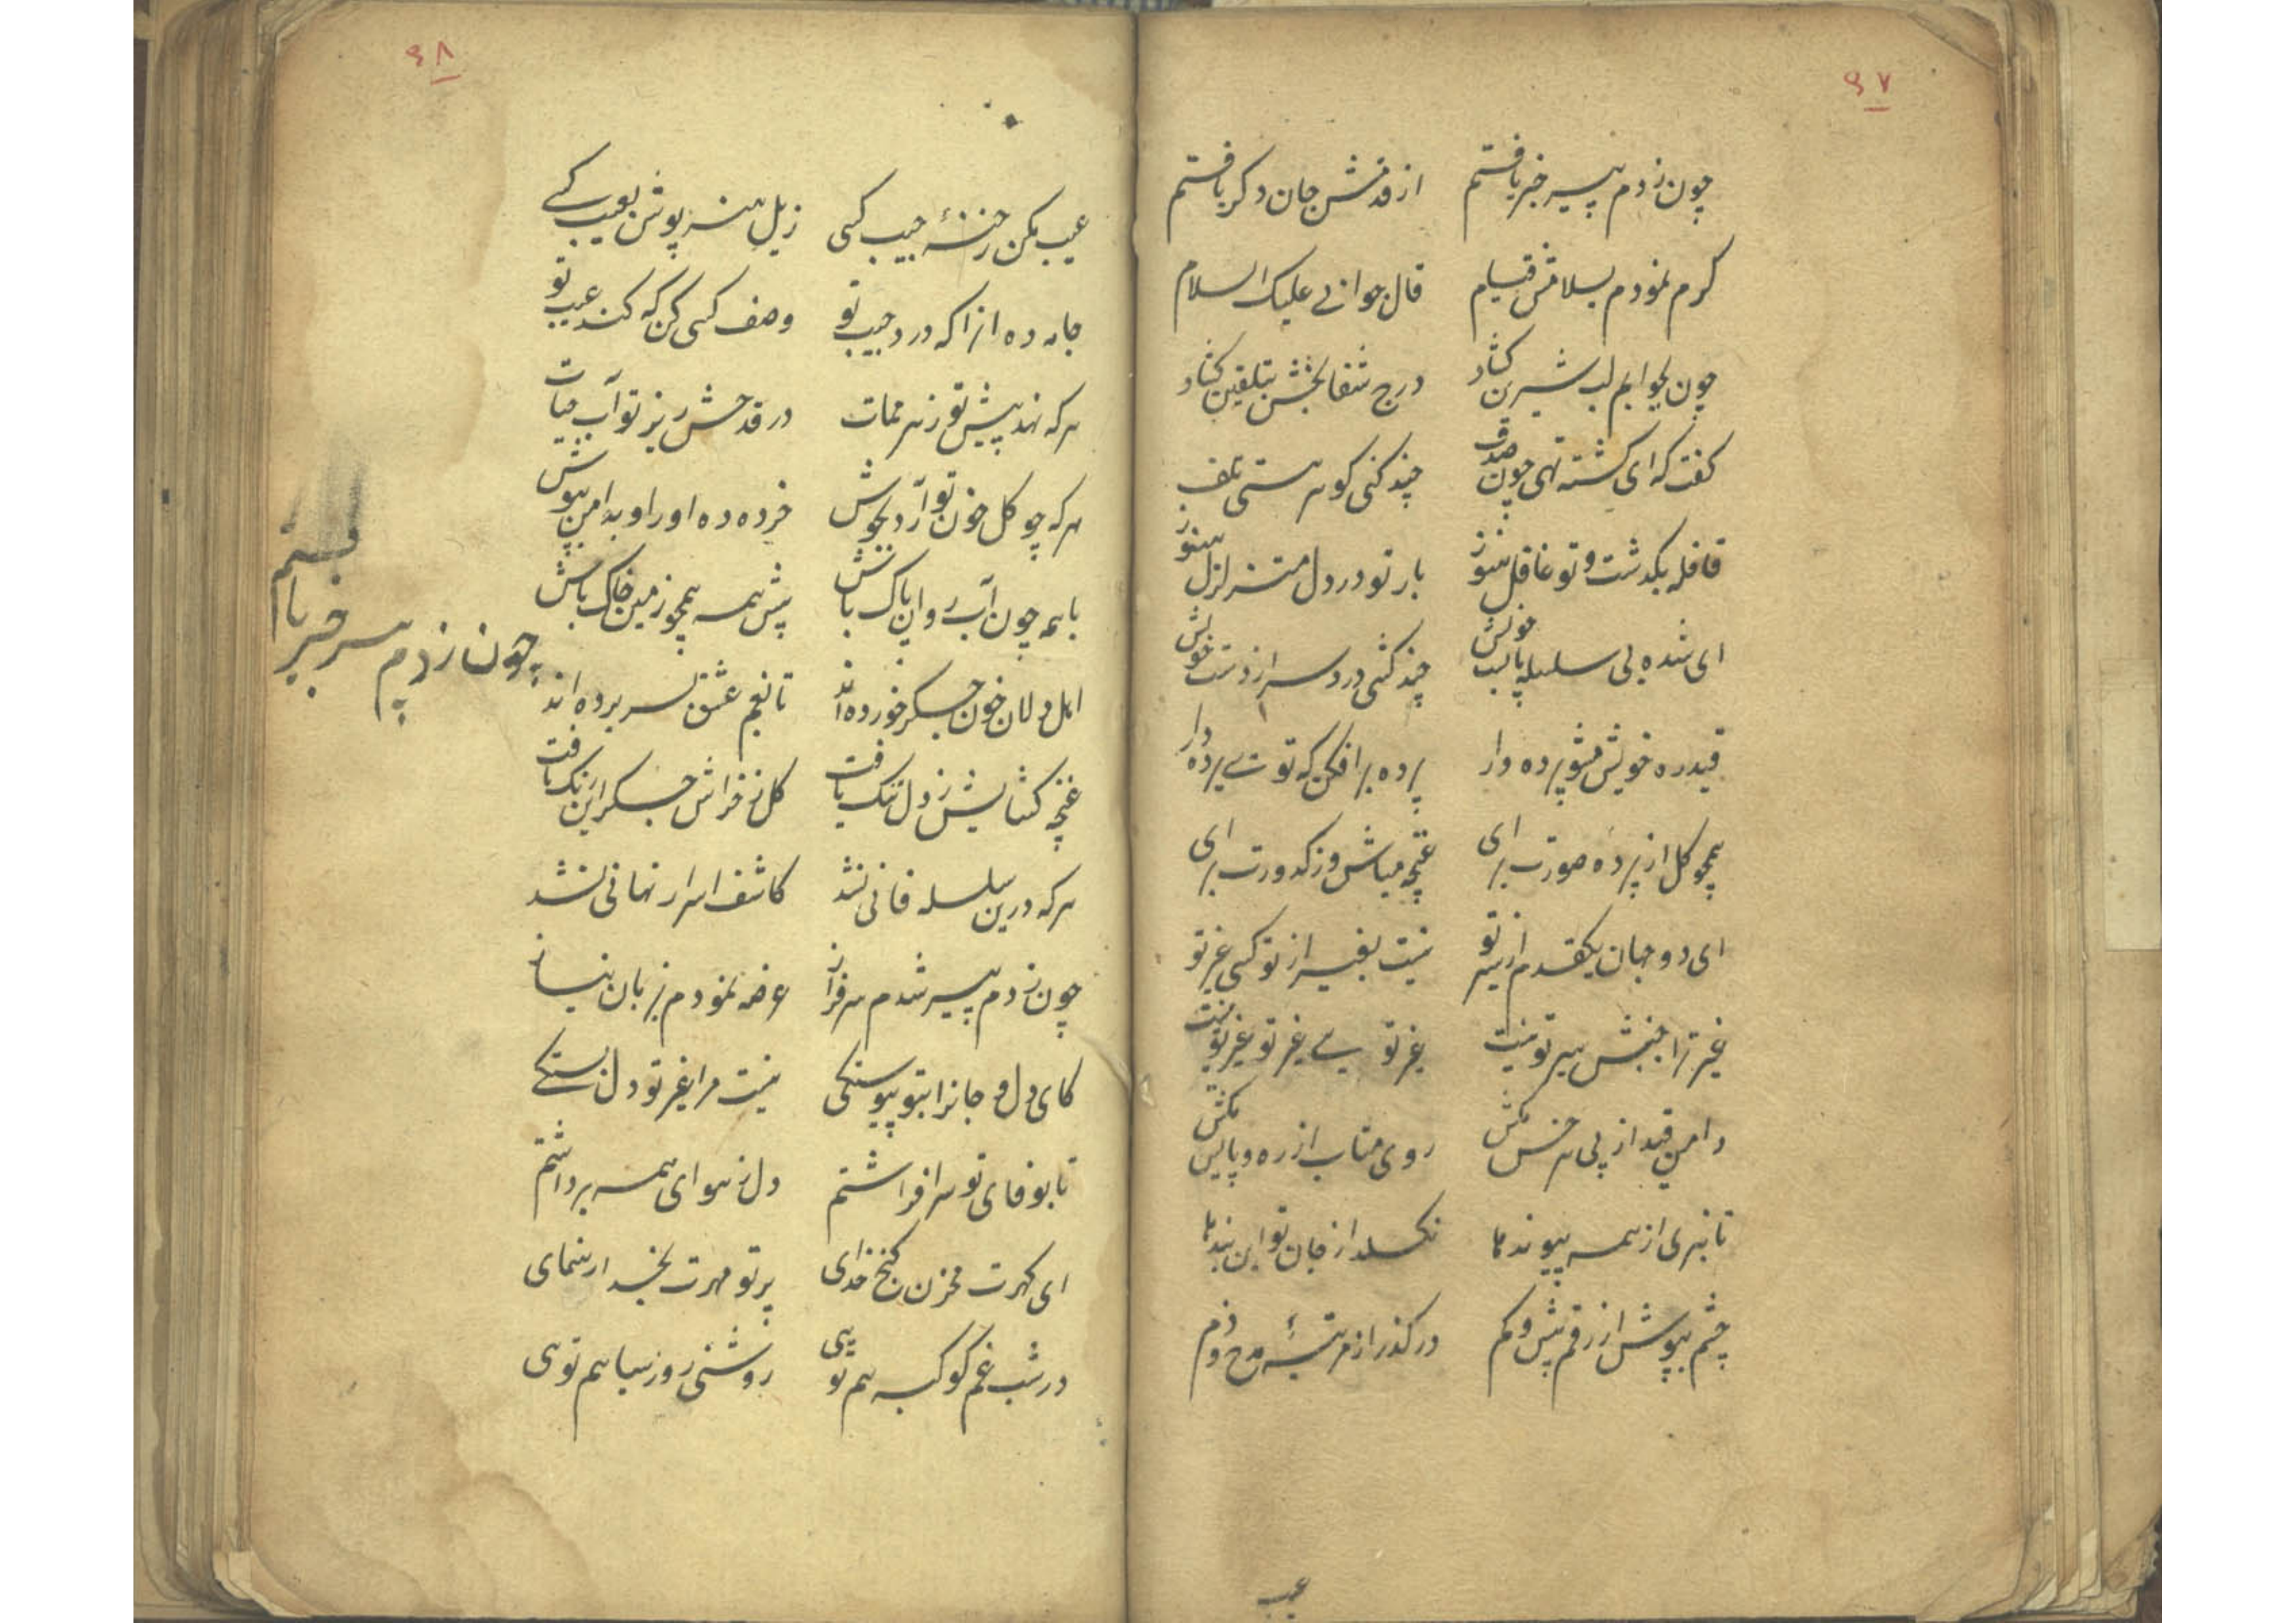 ۹۷
چون ز دم پیر خبر یافتم از قدمش جان دکر یافتم
کرم نمودم بسلامش قیام قال جوابی علیک السلام
چون بجوابم لب شیرین کشاد درج شفا بخش بتلقین کشاد
کفت که ای کشته تهی چون صدف چند کنی کوهر هستی تلف
قافله بکدشت و تو غافل هنوز بار تو در دل متزلزل هنوز
ای شده بی سلسله پابست خویش چند کشی درد سر از دست خویش
قید ره خویش مشو پرده دار پرده برافکن که توئے پرده دار
همچو کل از پرده صورت برای غنچه مباش و ز کدورت برای
ای دو جهان یکقدم از سیر تو نیست بغیر از تو کسی غیر تو
غیر ترا جنبش سیر تو نیست غیر تو بے غیر تو غیر تو نیست
دامن قید از پی هر خس مکش روی متاب از ره و پا پس مکش
تا نبری از همه پیوند ما نکسلد از جان تو این بند ما
چشم بپوش از رقم بیش و کم در کذر از مرتبۀ مدح و ذم
عیب
۹۸
عیب مکن رخنۀ جیب کسی ذیل هنر پوش بعیب کسے
جامه ده انرا که درد جیب تو وصف کسی کن که کند عیب تو
هر که نهد پیش تو زهر ممات در قدحش ریز تو آب حیات
هر که چو کل خون تو آرد بجوش خرده ده او را و بدامن بپوش
با همه چون آب روان پاک باش پیش همه همچو زمین خاک باش
اهل دلان خون جکر خورده اند تا بغم عشق بسر برده اند
غنچه کشایش ز دل تنک یافت کل ز خراش جکر این رنک یافت
هر که درین سلسله فانی نشد کاشف اسرار نهانی نشد
چون ز دم پیر شدم سرفراز عرضه نمودم بزبان نیاز
کای دل و جانرا بتو پیوستکی نیست مرا غیر تو دل بستکے
تا بوفای تو سر افراشتم دل ز هوای همه برداشتم
ای کهرت مخزن کنج خدای پرتو مهرت بخدا رهنمای
در شب غم کوکبه هم تویی روشنی روز سیاهم توی
چون ز دم پیر خبر یافتم